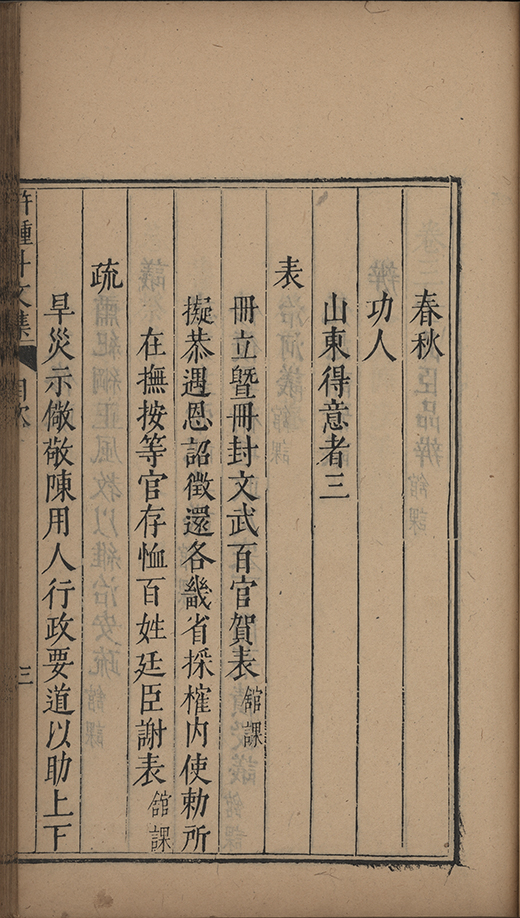 春秋
功人
山東得意者三
表
冊立暨冊封文武百官賀表 館課
擬恭遇恩詔徵還各畿省採榷內使勅所
在撫按等官存恤百姓廷臣謝表 館課
疏
旱災示儆敬陳用人行政要道以助上下
許鍾斗文集 目次 三